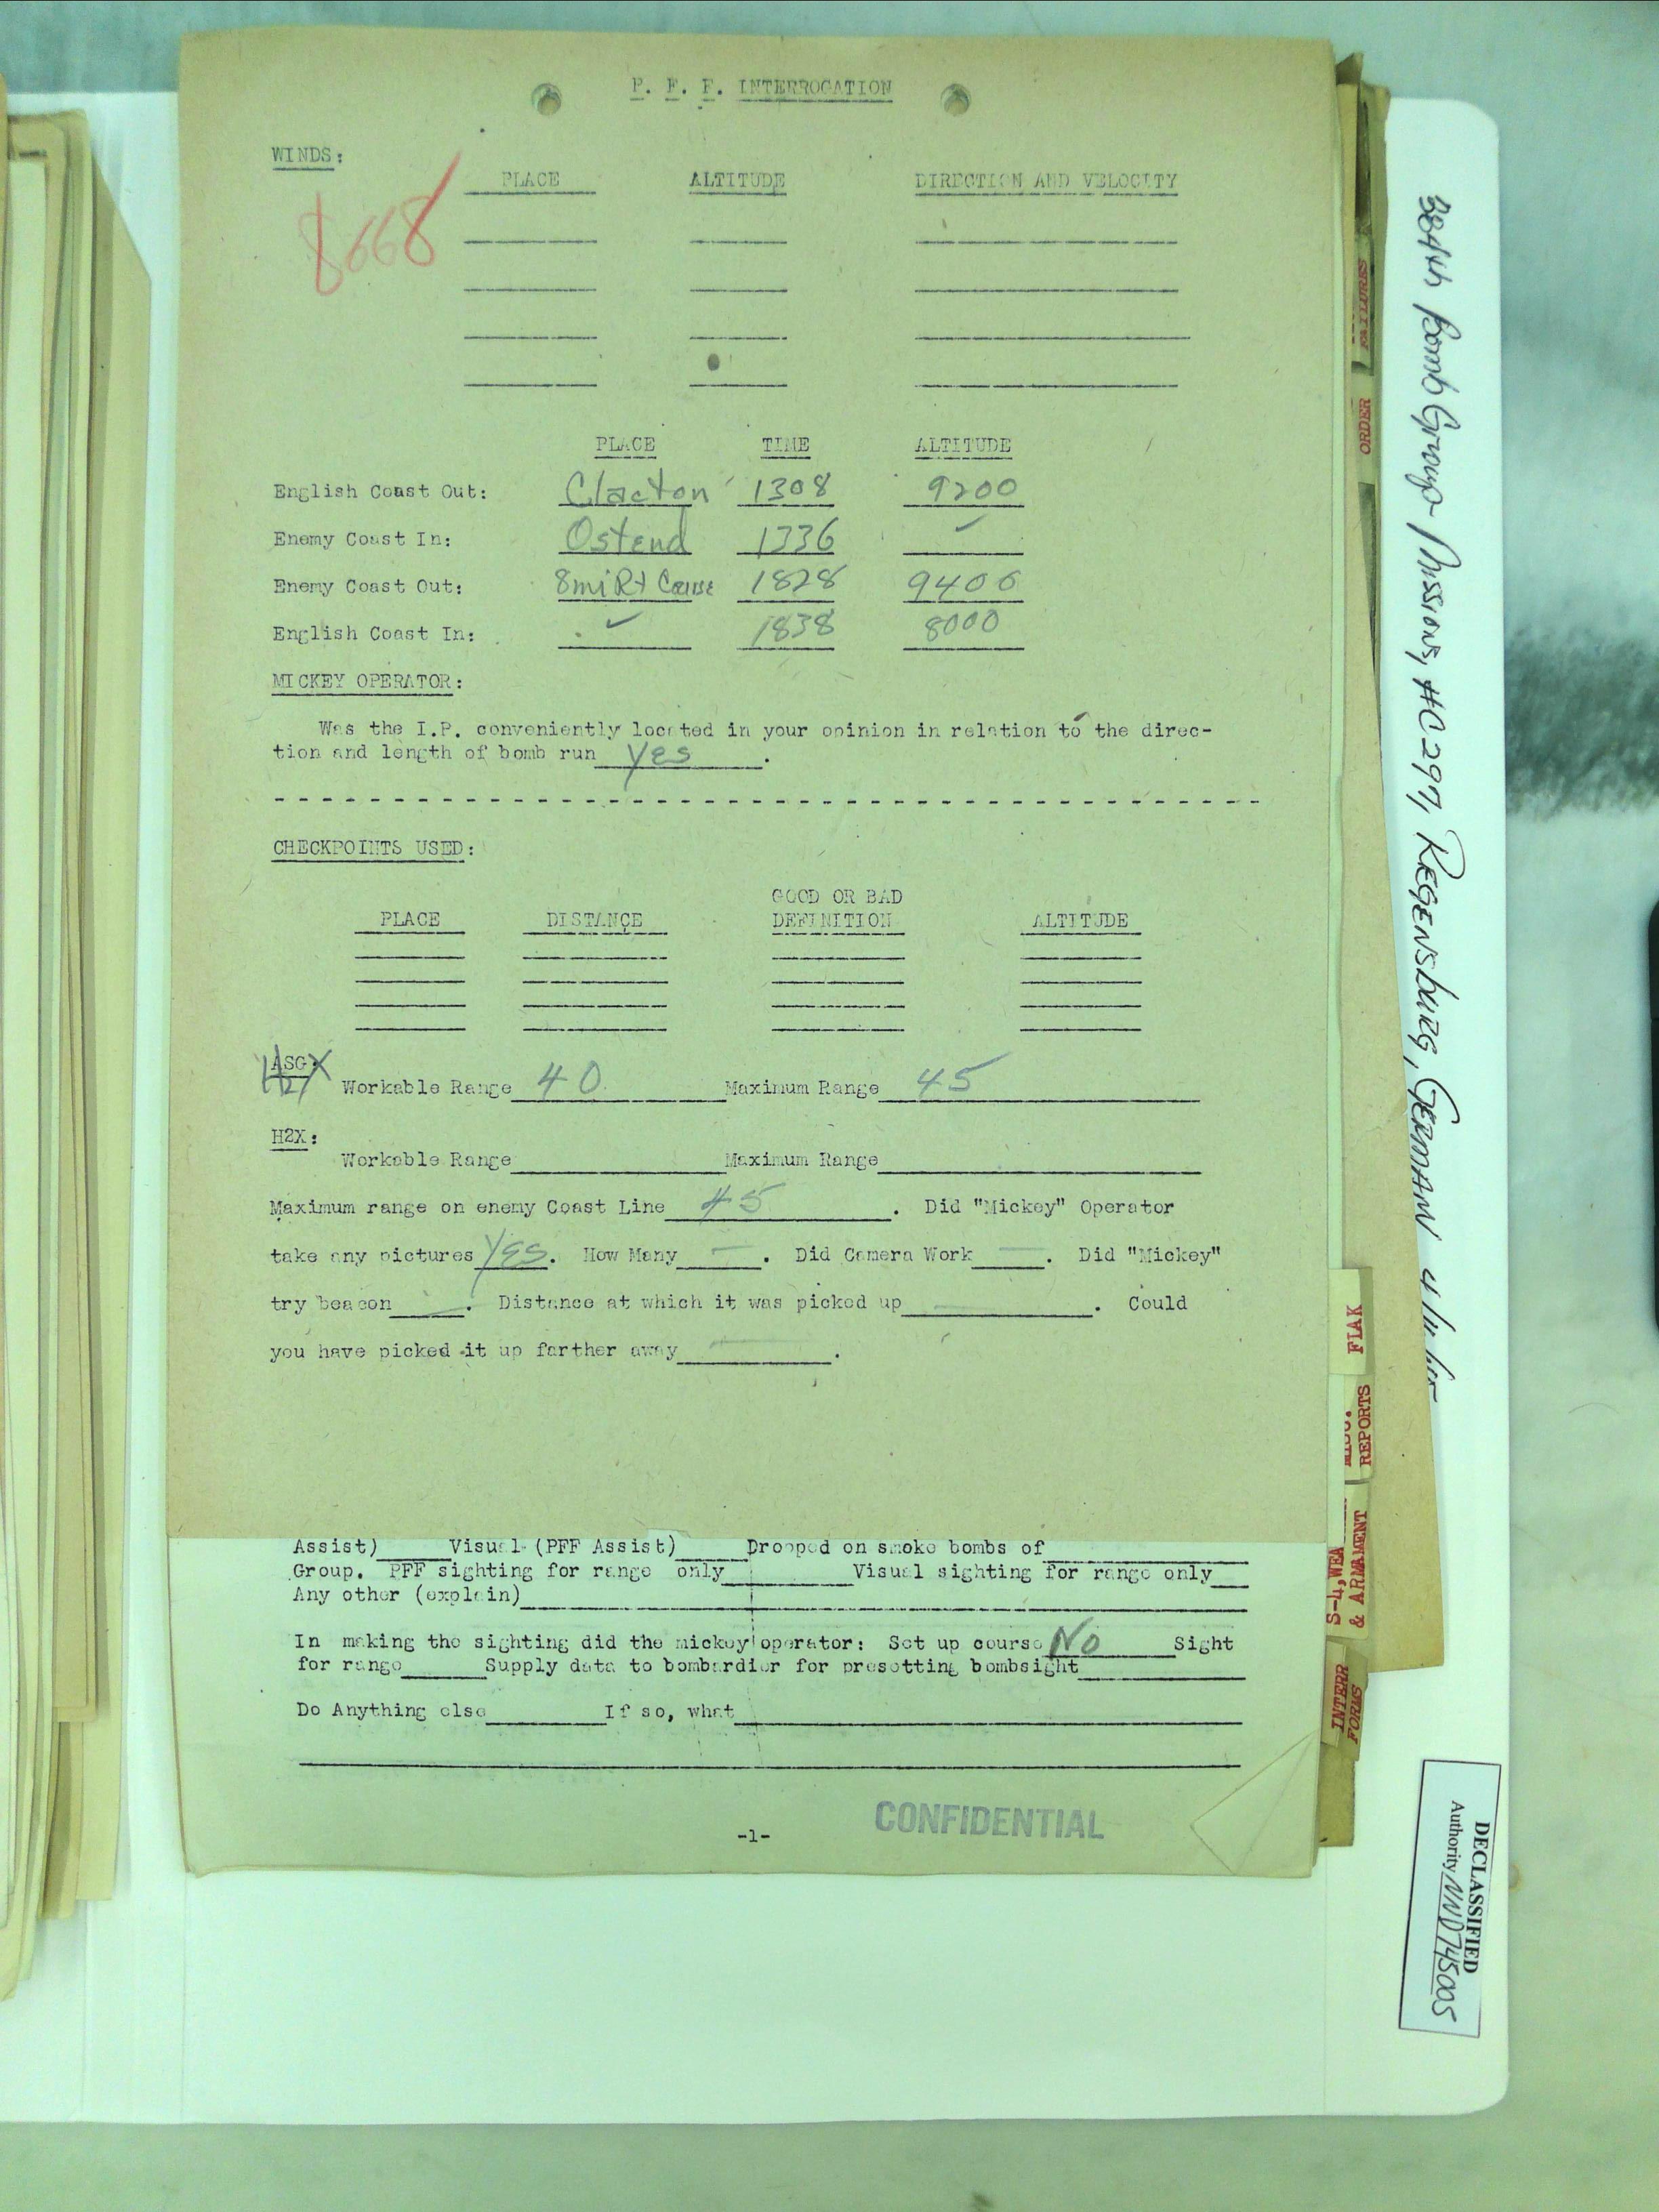 P. F. F. INTERROGATION
WINDS:
8668
PLACE ALTITUDE DIRECTION AND VELOCITY
PLACE TIME ALTITUDE
English Coast Out: Clacton 1308 9200
Enemy Coast In: Ostend 1336
Enemy Coast Out: 8mi Rt Course 1828 9400
English Coast In: 1838 8000
MICKEY OPERATOR:
Was the I.P. conveniently located in your opinion in relation to the direc-
tion and length of bomb run yes.
CHECKPOINTS USED:
GOOD OR BAD
PLACE DISTANCE DEFINITION ALTITUDE
ASG:
H2X
Workable Range 40 Maximum Range 45
H2X:
Workable Range Maximum Range
Maximum range on enemy Coast Line 45. Did "Mickey" Operator
take any pictures yes. How Many —. Did Camera Work —. Did "Mickey"
try beacon —. Distance at which it was picked up —. Could
you have picked it up farther away —.
Assist) Visual (PFF Assist) Dropped on smoke bombs of
Group. PFF sighting for range only Visual sighting for range only
Any other (explain)
In making the sighting did the mickey operator: Set up course No Sight
for range Supply data to bombardier for presetting bombsight
Do Anything else If so, what
-1-
CONFIDENTIAL
FAILURES
ORDER
FLAK
REPORTS
S-4, WEA
& ARMAMENT
INTERR
FORMS
384th Bomb Group Missions, #C 297, REGENSBURG, GERMANY
DECLASSIFIED
Authority NND 745005